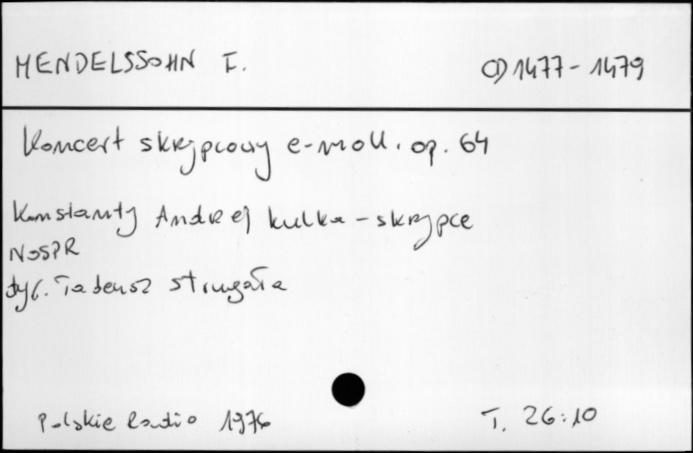 MENDELSSOHN F. CD 1477-1479
Koncert skrzypcowy e-moll. op. 64
Konstanty Andrzej Kulka - skrzypce
NOSPR
dyr. Tadeusz Strugała
Polskie Radio 1976 T. 26:10